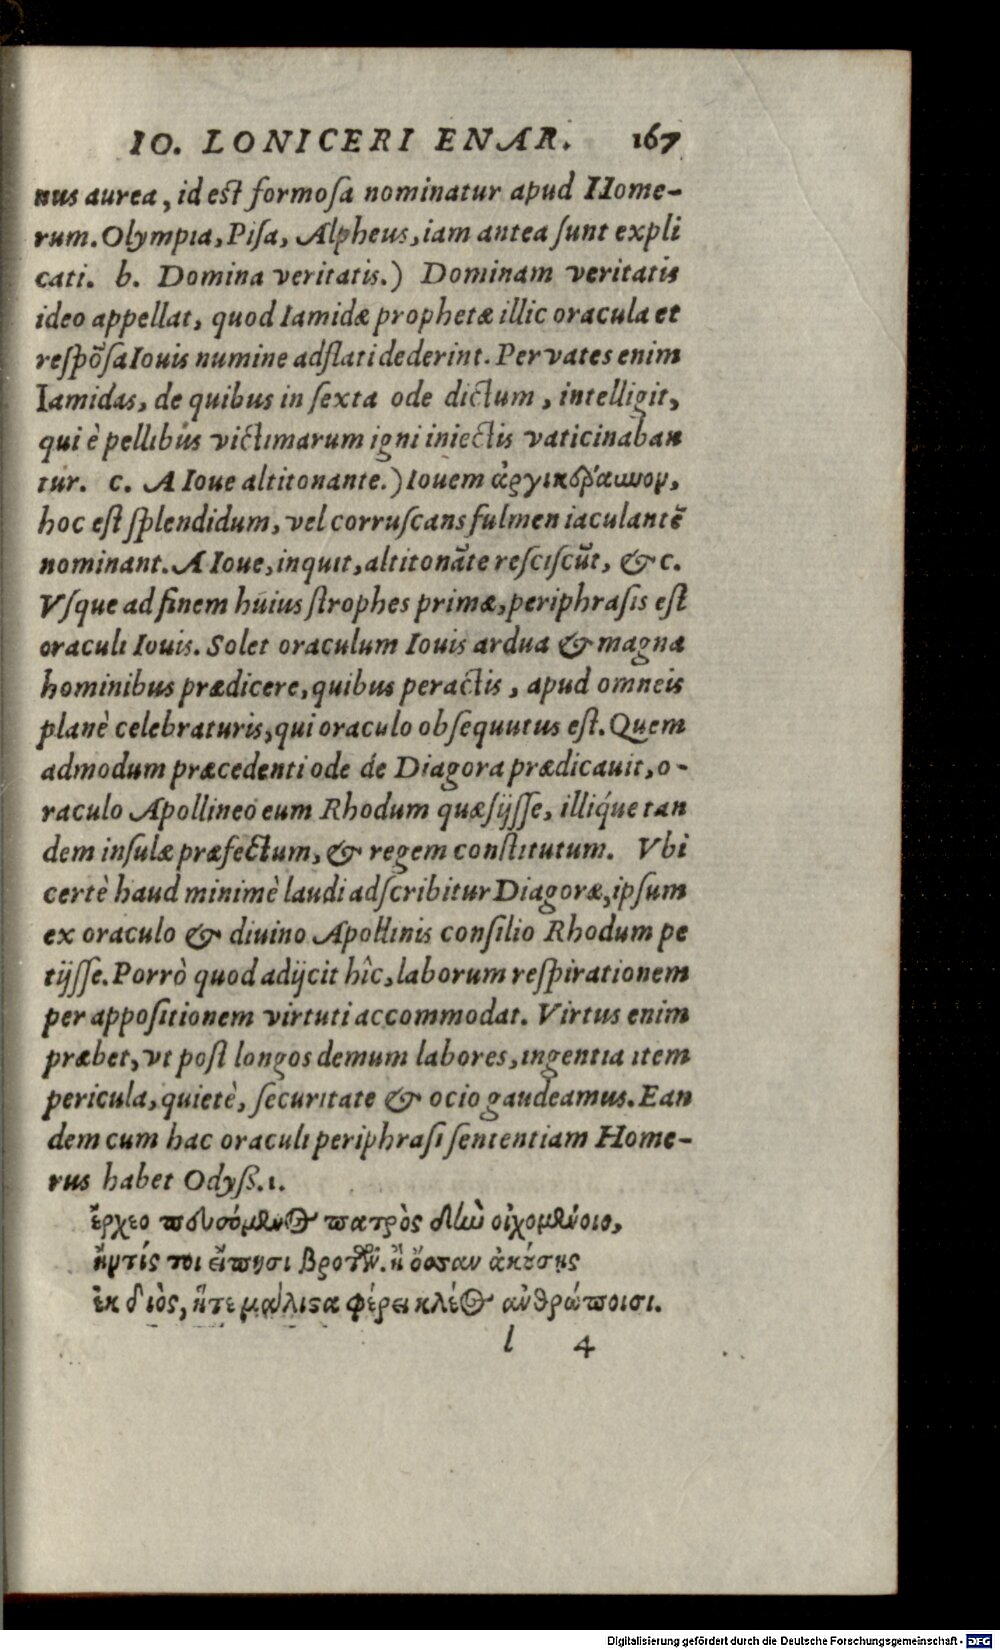 IO. LONICERI ENAR. 167
nus aurea, id est formosa nominatur apud Home-
rum. Olympia, Pisa, Alpheus, iam antea sunt expli
cati. b. Domina veritatis.) Dominam veritatis
ideo appellat, quod Iamidæ prophetæ illic oracula et
respõsa Iouis numine adflati dederint. Per vates enim
Iamidas, de quibus in sexta ode dictum, intelligit,
qui è pellibus victimarum igni iniectis vaticinaban
tur. c. A Ioue altitonante.) Iouem ἀργικέραυνον,
hoc est splendidum, vel corruscans fulmen iaculantẽ
nominant. A Ioue, inquit, altitonãte resciscũt, & c.
Vsque ad finem huius strophes primæ, periphrasis est
oraculi Iouis. Solet oraculum Iouis ardua & magna
hominibus prædicere, quibus peractis, apud omneis
planè celebraturis, qui oraculo obsequutus est. Quem
admodum præcedenti ode de Diagora prædicauit, o-
raculo Apollineo eum Rhodum quæsijsse, illíque tan
dem insulæ præfectum, & regem constitutum. Vbi
certè haud minimè laudi adscribitur Diagoræ, ipsum
ex oraculo & diuino Apollinis consilio Rhodum pe
tijsse. Porrò quod adijcit hîc, laborum respirationem
per appositionem virtuti accommodat. Virtus enim
præbet, vt post longos demum labores, ingentia item
pericula, quietè, securitate & ocio gaudeamus. Ean
dem cum hac oraculi periphrasi sententiam Home-
rus habet Odyß. 1.
ἔρχεο πευσόμενος πατρὸς δὴν οἰχομένοιο,
ἤντίς τοι εἴπησι βροτῶν. ἢ ὄσσαν ἀκούσῃς
ἐκ διὸς, ἥτε μάλιστα φέρει κλέος ἀνθρώποισι.
l 4
Digitalisierung gefördert durch die Deutsche Forschungsgemeinschaft - DFG